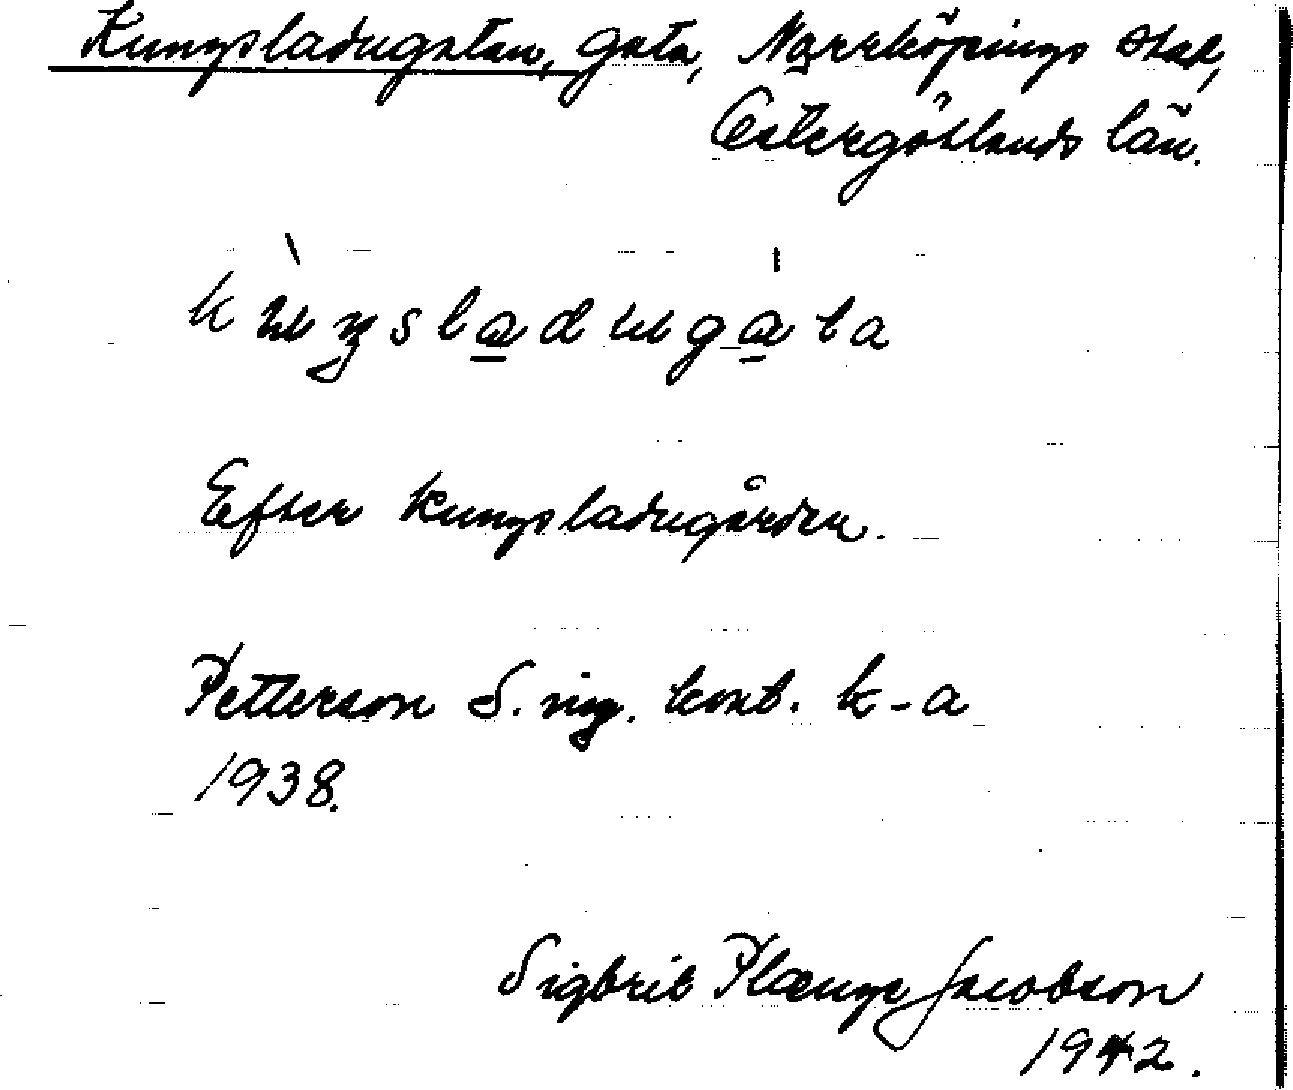 Kungsladugatan, gata, Norrköpings stad,
Östergötlands län.
kùŋsladugáta
Efter Kungsladugården.
Petterson S. ing. kont. k-a
1938.
Sigbrit Plænge Jacobson
1942.